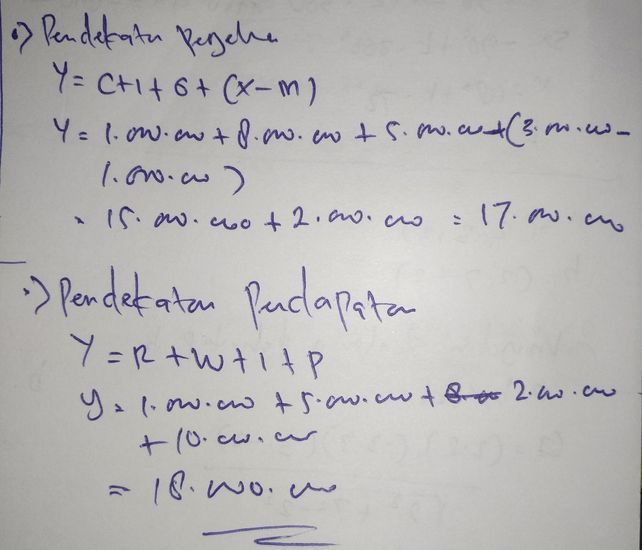 •) Pendekatan Pengeluaran
Y = C+I+G+(X-M)
Y = 1.000.000 + 8.000.000 + 5.000.000 + (3.000.000 -
1.000.000)
= 15.000.000 + 2.000.000 = 17.000.000
•) Pendekatan Pendapatan
Y = R + W + I + P
Y = 1.000.000 + 5.000.000 + 2.000.000
+ 10.000.000
= 18.000.000